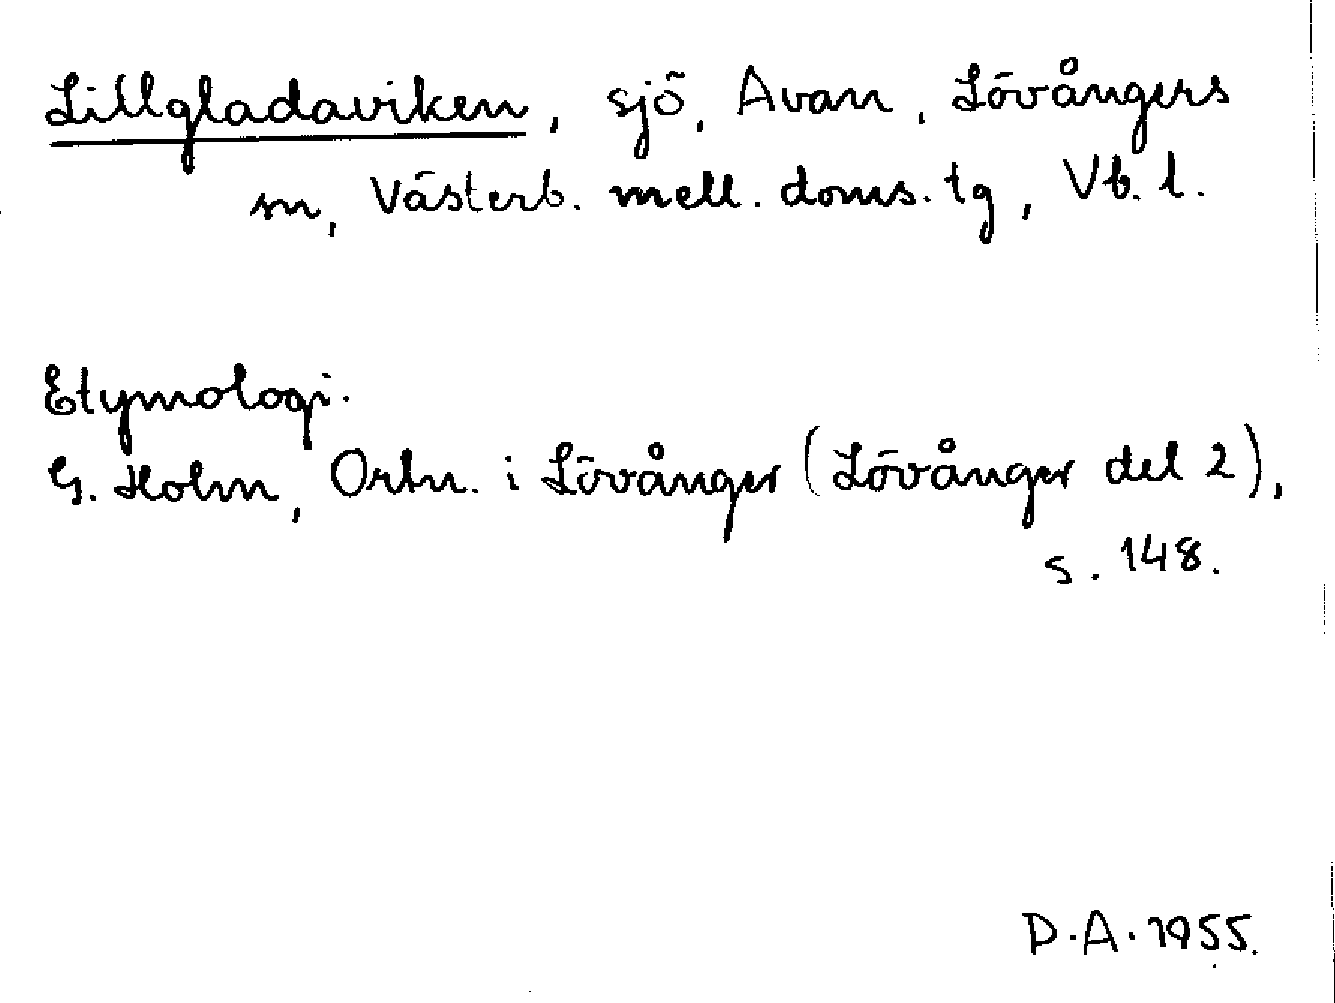 Lillgladaviken, sjö, Avan, Lövångers
sn, Västerb. mell. doms. tg, Vb. l.
Etymologi.
G. Holm, Ortn. i Lövånger (Lövånger del 2),
s. 148.
D.A. 1955.